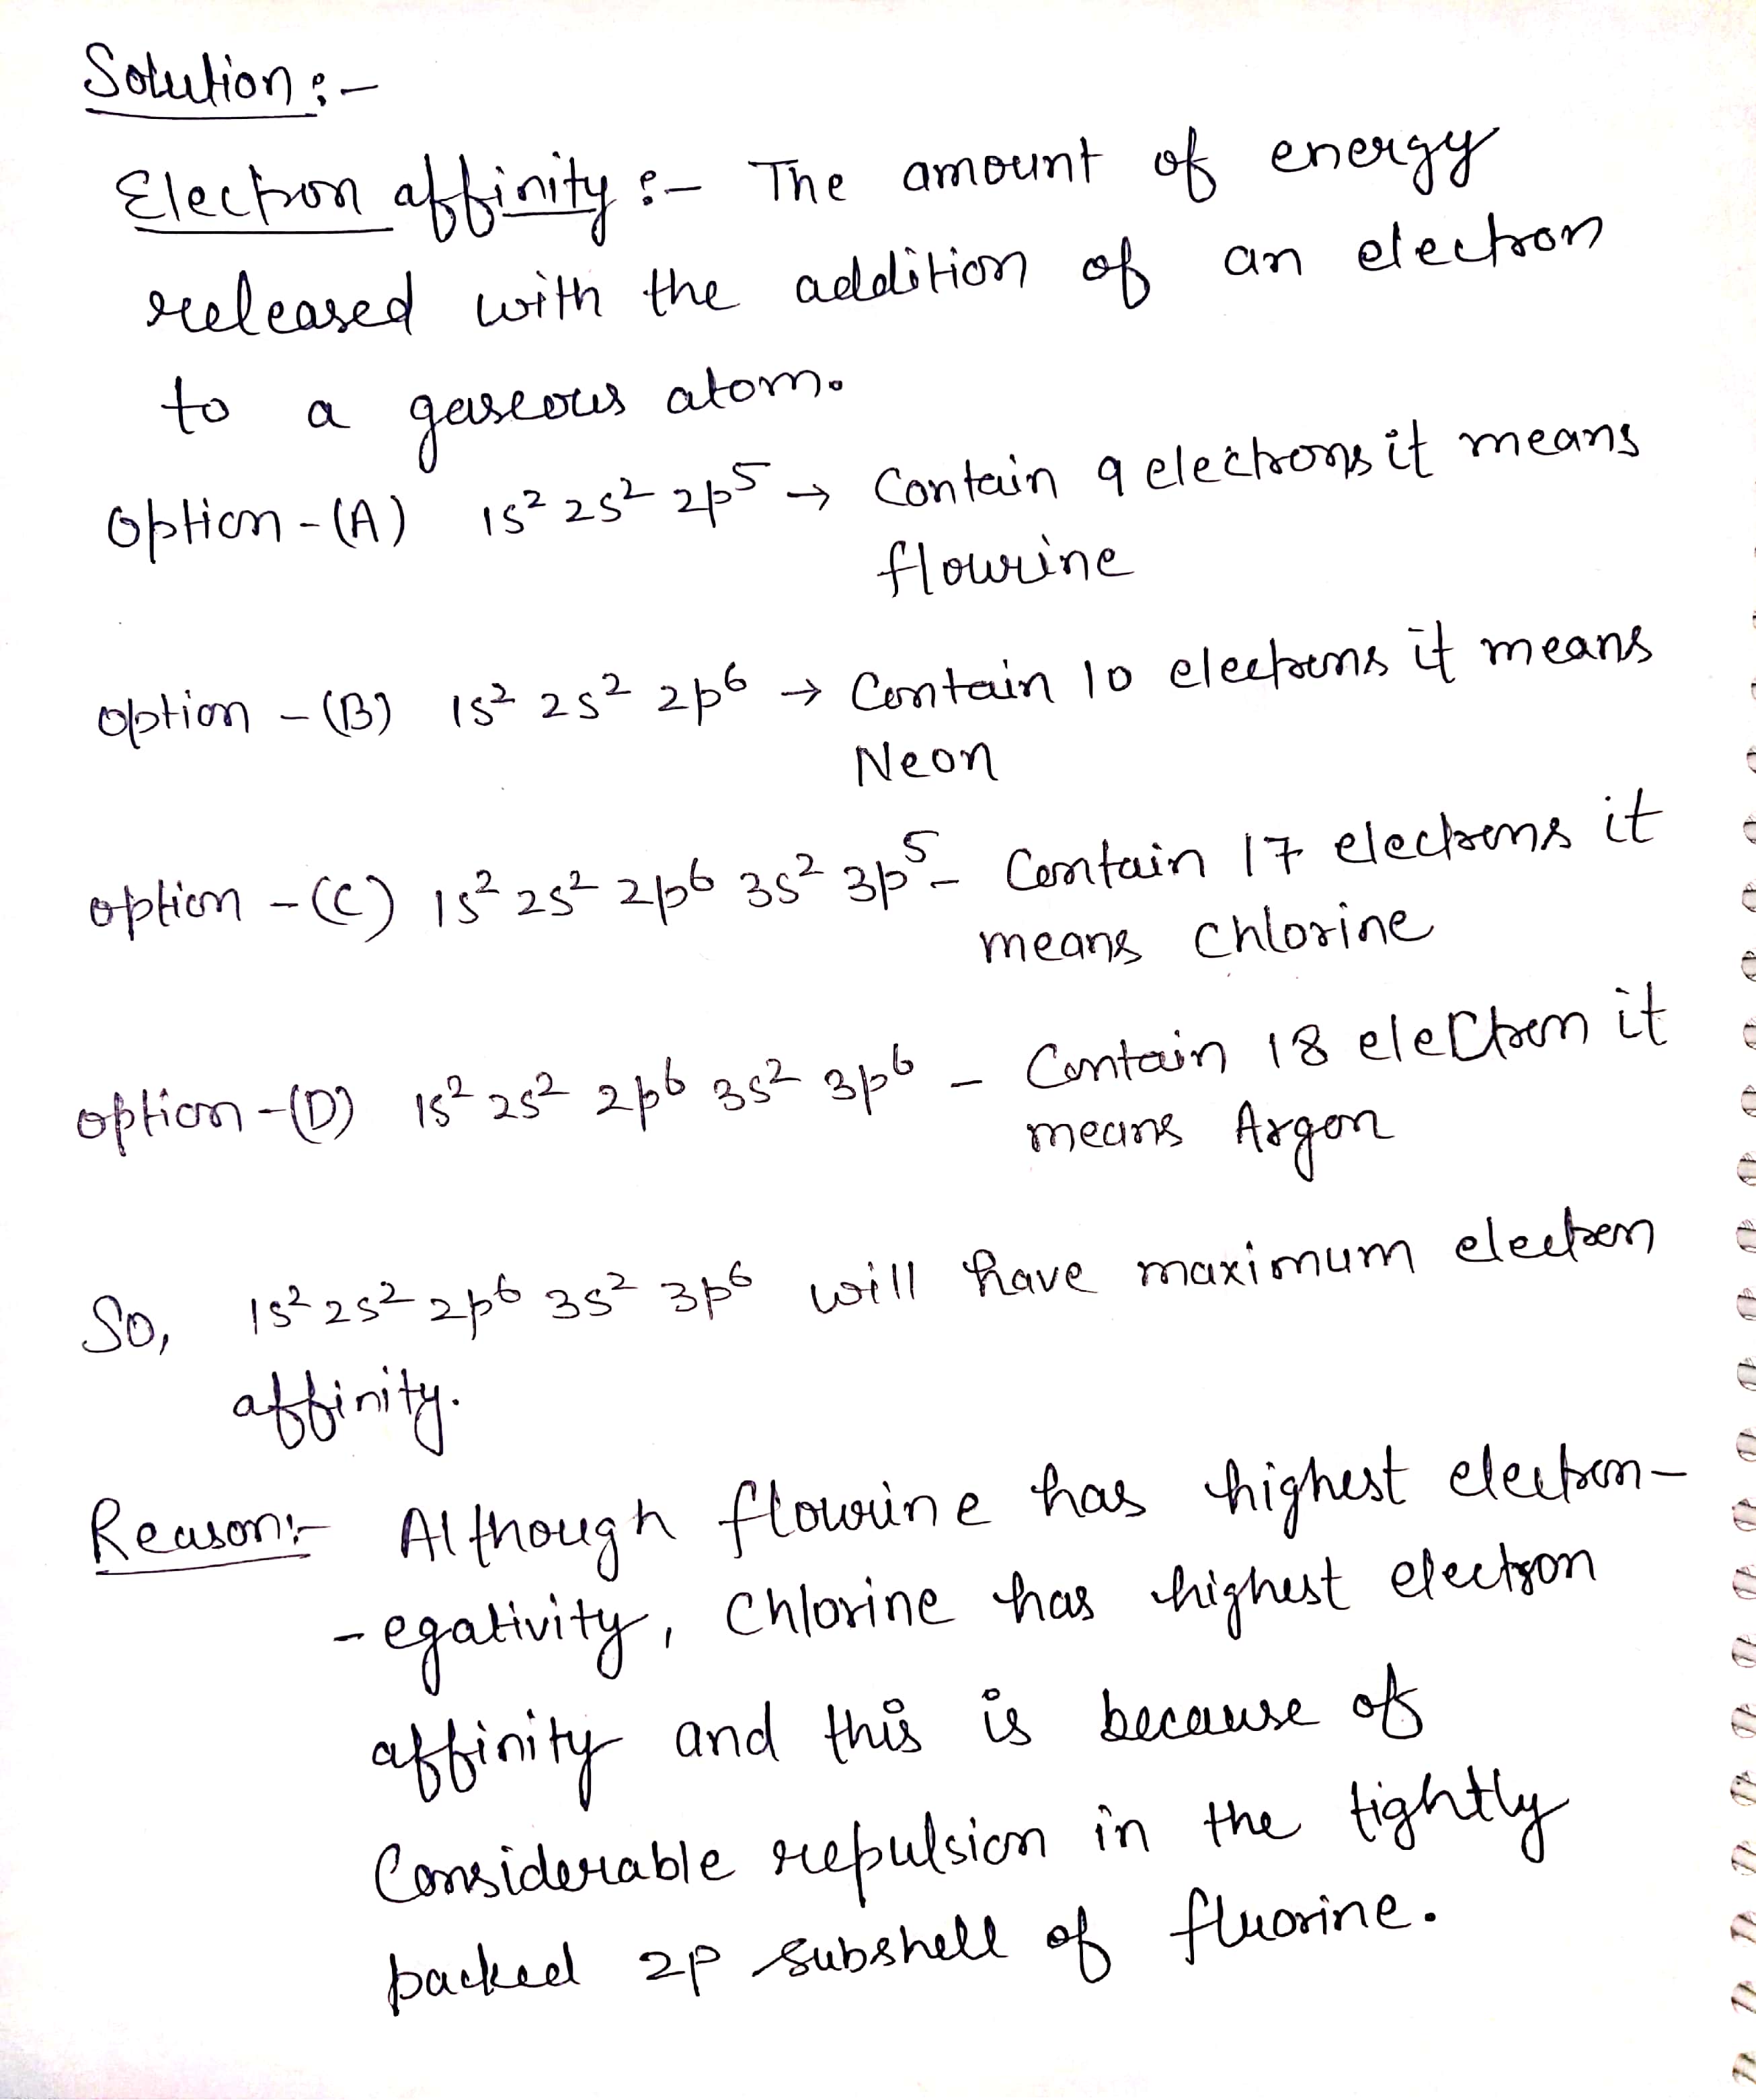 Solution :-
Electron affinity :- The amount of energy
released with the addition of an electron
to a gaseous atom.
Option - (A) 1s² 2s² 2p⁵ → Contain 9 electrons it means
flourine
Option - (B) 1s² 2s² 2p⁶ → Contain 10 electrons it means
Neon
option - (C) 1s² 2s² 2p⁶ 3s² 3p⁵ - Contain 17 electrons it
means chlorine
option - (D) 1s² 2s² 2p⁶ 3s² 3p⁶ - Contain 18 electron it
means Argon
So, 1s² 2s² 2p⁶ 3s² 3p⁶ will have maximum electron
affinity.
Reason:- Although flourine has highest electron-
-egativity, Chlorine has highest electron
affinity and this is because of
Considerable repulsion in the tightly
packed 2p subshell of fluorine.